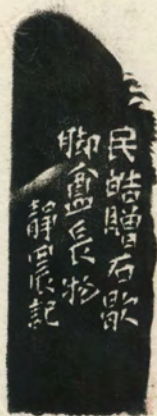 民皓贈石歇
脚盦長物
靜農記